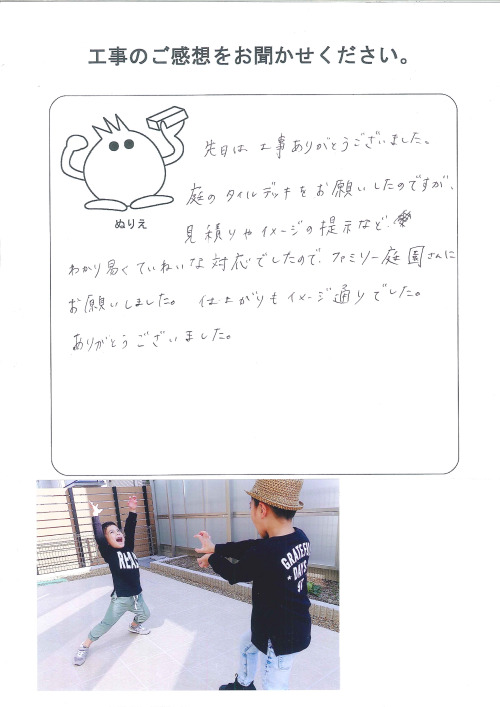 工事のご感想をお聞かせください。
先日は工事ありがとうございました。
庭のタイルデッキをお願いしたのですが、
見積りやイメージの提示など、
わかり易くていねいな対応でしたので、ファミリー庭園さんに
お願いしました。 仕上がりもイメージ通りでした。
ありがとうございました。
ぬりえ
GRATEFUL
DAYS